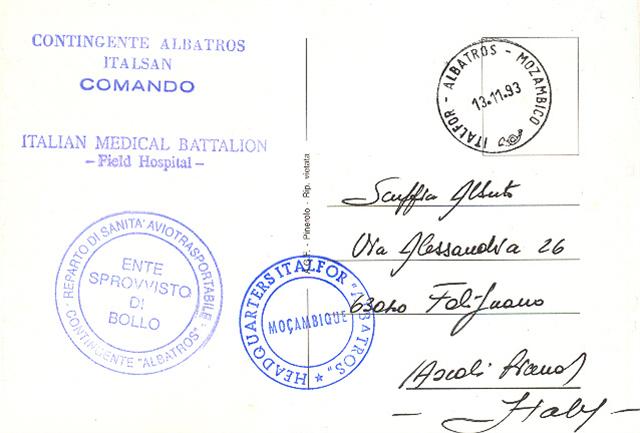 CONTINGENTE ALBATROS
ITALSAN
COMANDO
ITALIAN MEDICAL BATTALION
- Field Hospital -
REPARTO DI SANITA' AVIOTRASPORTABILE
CONTINGENTE "ALBATROS"
ENTE
SPROVVISTO
DI
BOLLO
- Pinerolo - Rip. vietata
HEADQUARTERS ITALFOR "ALBATROS"
MOÇAMBIQUE
ITALFOR - ALBATROS - MOZAMBICO
13.11.93
Alberto
Via Alessandria 26
63020 Folignano
Ascoli Piceno
- Italy -